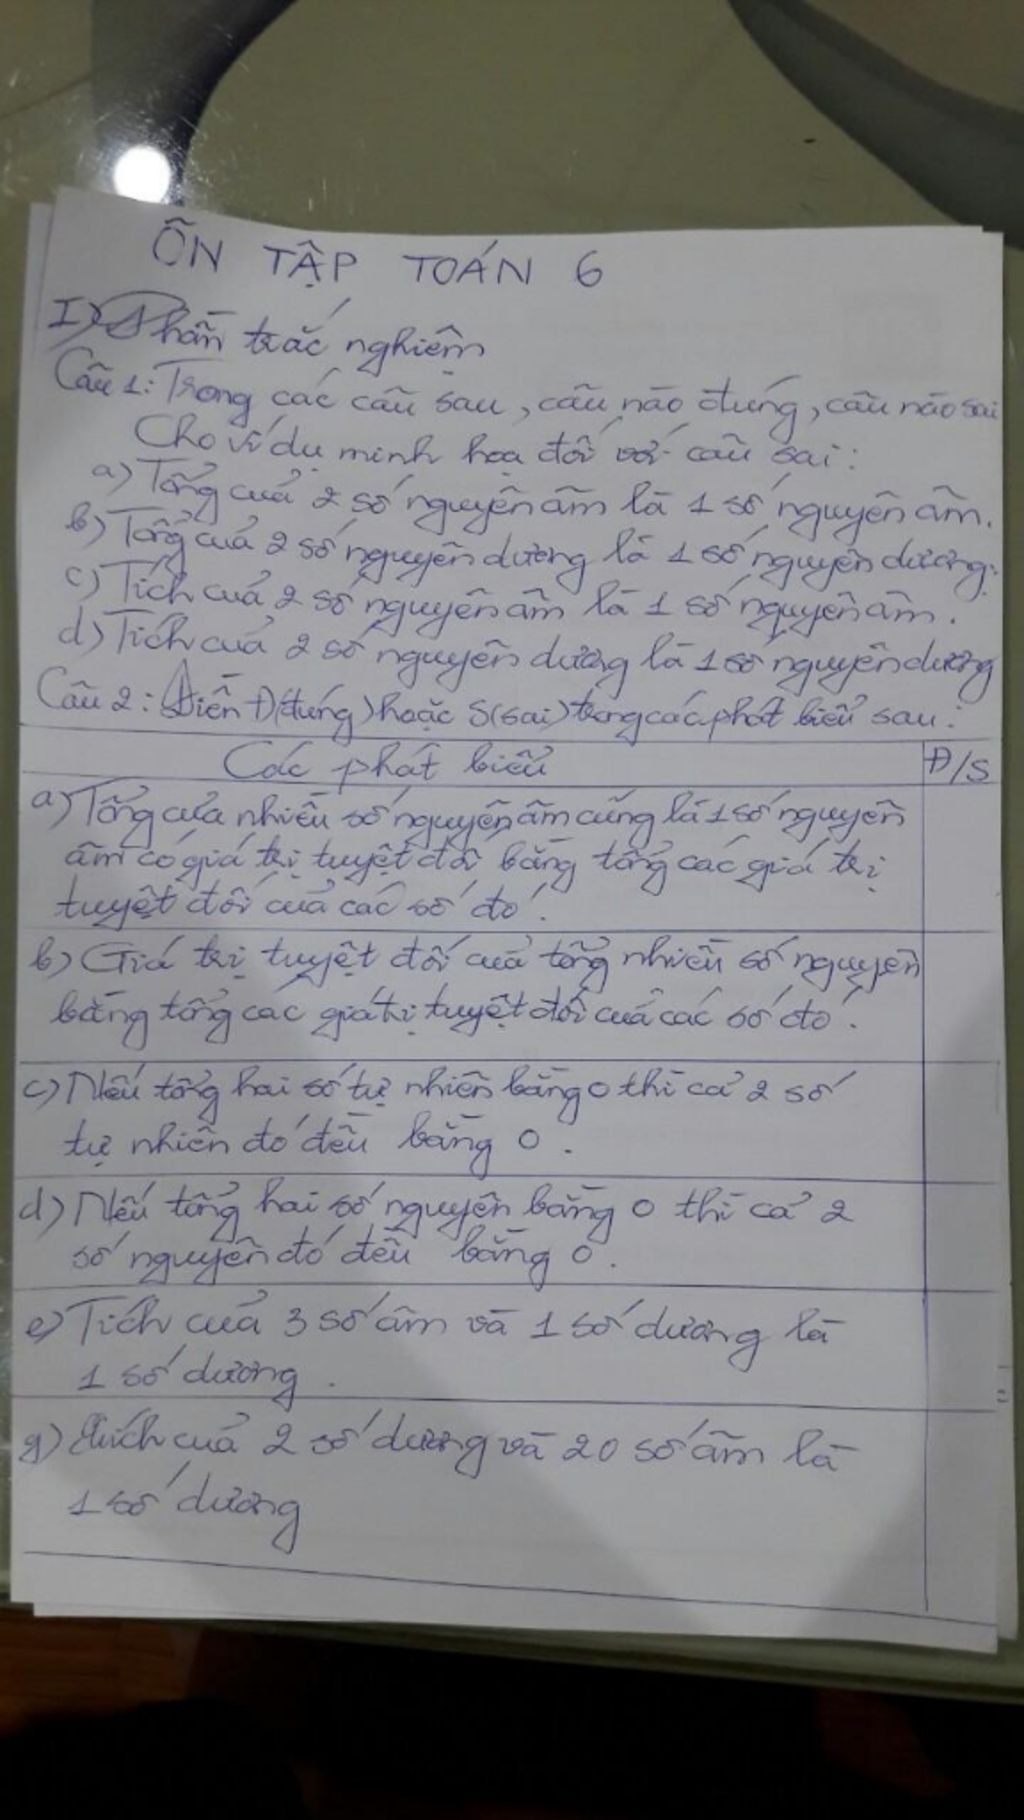 ÔN TẬP TOÁN 6
I) Phần trắc nghiệm
Câu 1: Trong các câu sau, câu nào đúng, câu nào sai
Cho ví dụ minh hoạ đối với câu sai:
a) Tổng của 2 số nguyên âm là 1 số nguyên âm.
b) Tổng của 2 số nguyên dương là 1 số nguyên dương.
c) Tích của 2 số nguyên âm là 1 số nguyên âm.
d) Tích của 2 số nguyên dương là 1 số nguyên dương
Câu 2: Điền Đ(đúng) hoặc S(sai) trong các phát biểu sau:
Các phát biểu Đ/S
a) Tổng của nhiều số nguyên âm cũng là 1 số nguyên
âm có giá trị tuyệt đối bằng tổng các giá trị
tuyệt đối của các số đó.
b) Giá trị tuyệt đối của tổng nhiều số nguyên
bằng tổng các giá trị tuyệt đối của các số đó.
c) Nếu tổng hai số tự nhiên bằng 0 thì cả 2 số
tự nhiên đó đều bằng 0.
d) Nếu tổng hai số nguyên bằng 0 thì cả 2
số nguyên đó đều bằng 0.
e) Tích của 3 số âm và 1 số dương là
1 số dương.
g) Tích của 2 số dương và 20 số âm là
1 số dương